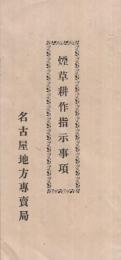 煙草耕作指示事項
名古屋地方專賣局